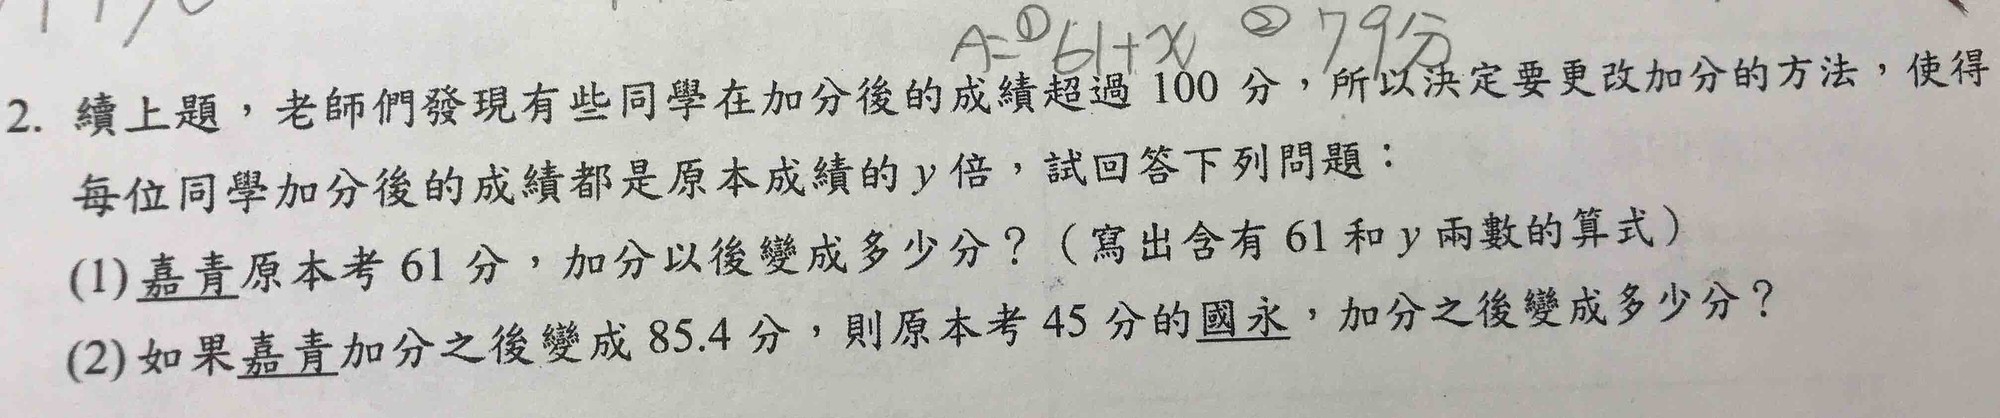 A=①61+x ②79分
2. 續上題，老師們發現有些同學在加分後的成績超過 100 分，所以決定要更改加分的方法，使得
每位同學加分後的成績都是原本成績的 y 倍，試回答下列問題：
(1) 嘉青原本考 61 分，加分以後變成多少分？（寫出含有 61 和 y 兩數的算式）
(2) 如果嘉青加分之後變成 85.4 分，則原本考 45 分的國永，加分之後變成多少分？